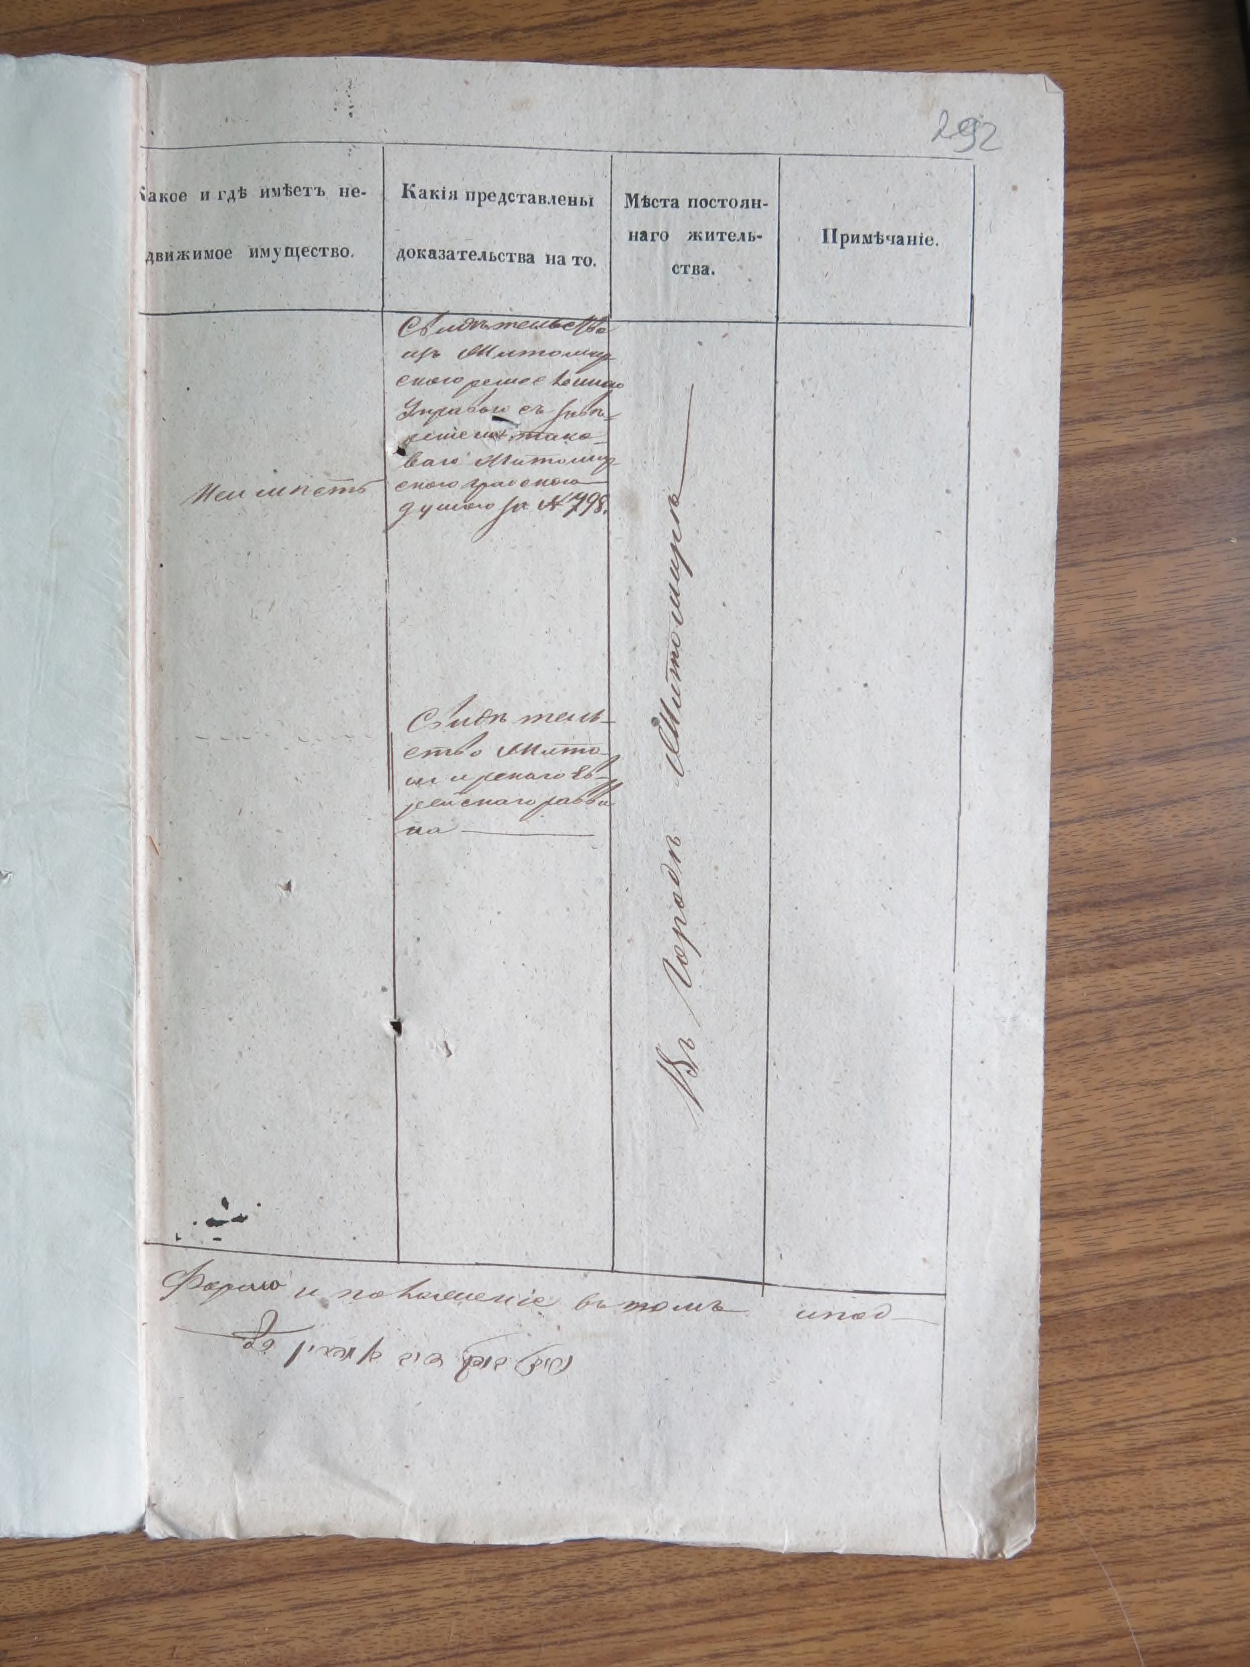 292
Какое и гдѣ имѣетъ не-
движимое имущество.
Какія представлены
доказательства на то.
Мѣста постоян-
наго житель-
ства.
Примѣчаніе.
Неимѣетъ
Свидѣтельство
изъ Житомир
скаго ремесленно
Управы съ
тако
ваго Житомир
скаго градскаго
думою за №798.
Свидѣтель-
ство Жито
мирскаго Ев-
рейскаго равви
на
Въ Городѣ Житомирѣ
и въ томъ